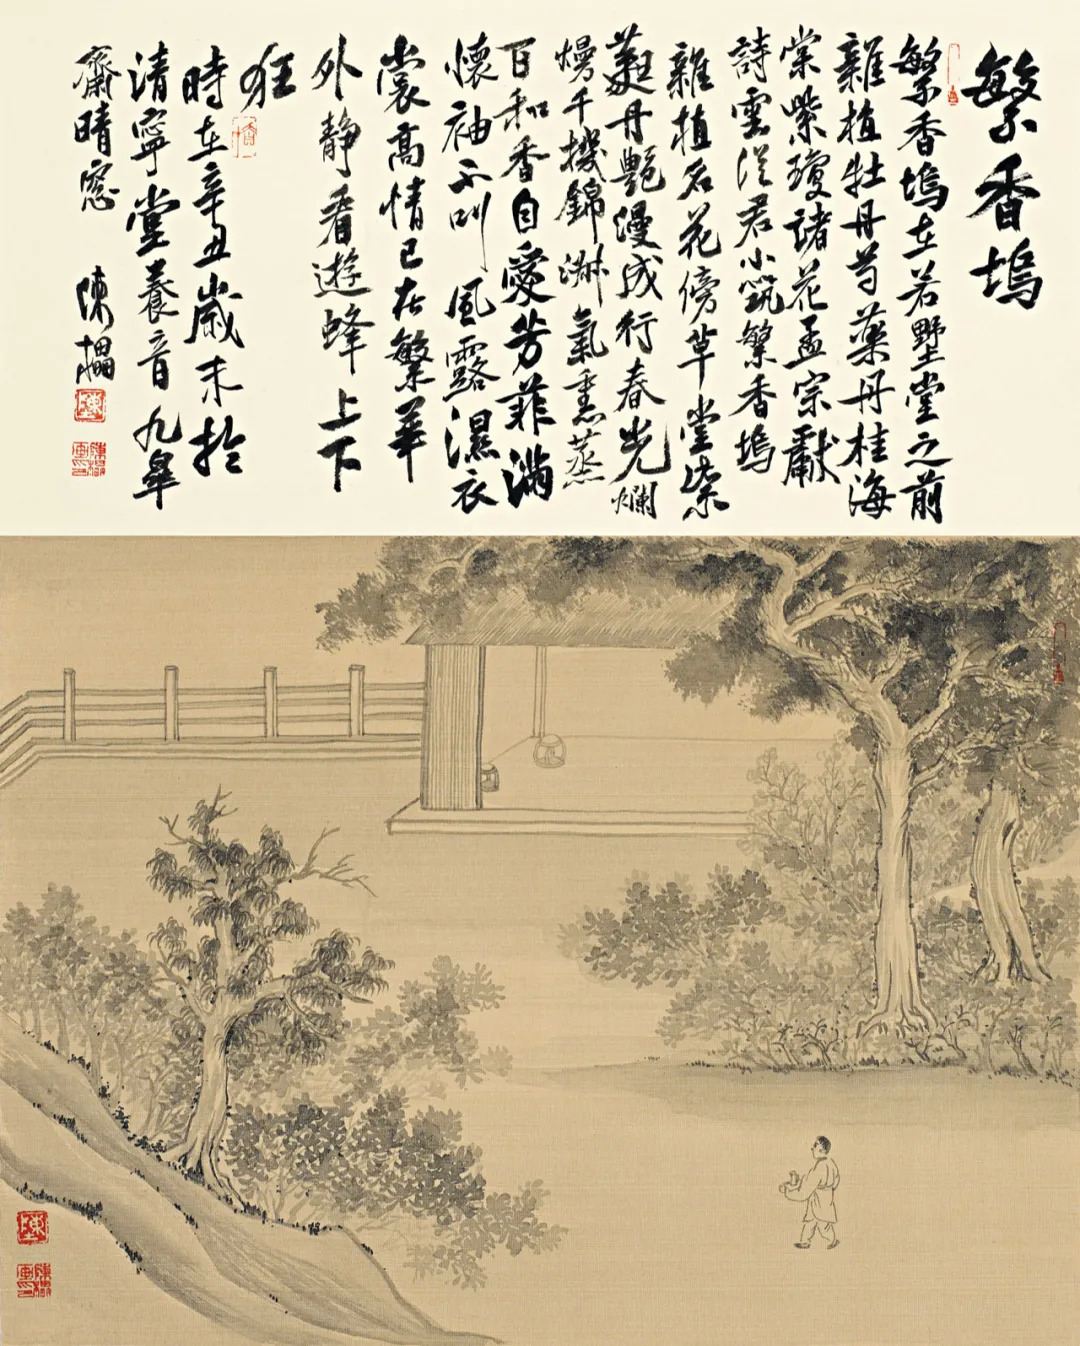 繁香塢
繁香塢在若墅堂之前
雜植牡丹芍藥丹桂海
棠紫瓊諸花孟宗獻
詩雲從君小筑繁香塢
雜植名花傍草堂紫
蕤丹艷漫成行春光爛
熳千機錦淑氣熏蒸
百和香自愛芳菲滿
懷袖不叫風露濕衣
裳高情已在繁華
外靜看遊蜂上下
狂
時在辛丑歲末於
清寧堂養音九皋
齋晴窓 陳